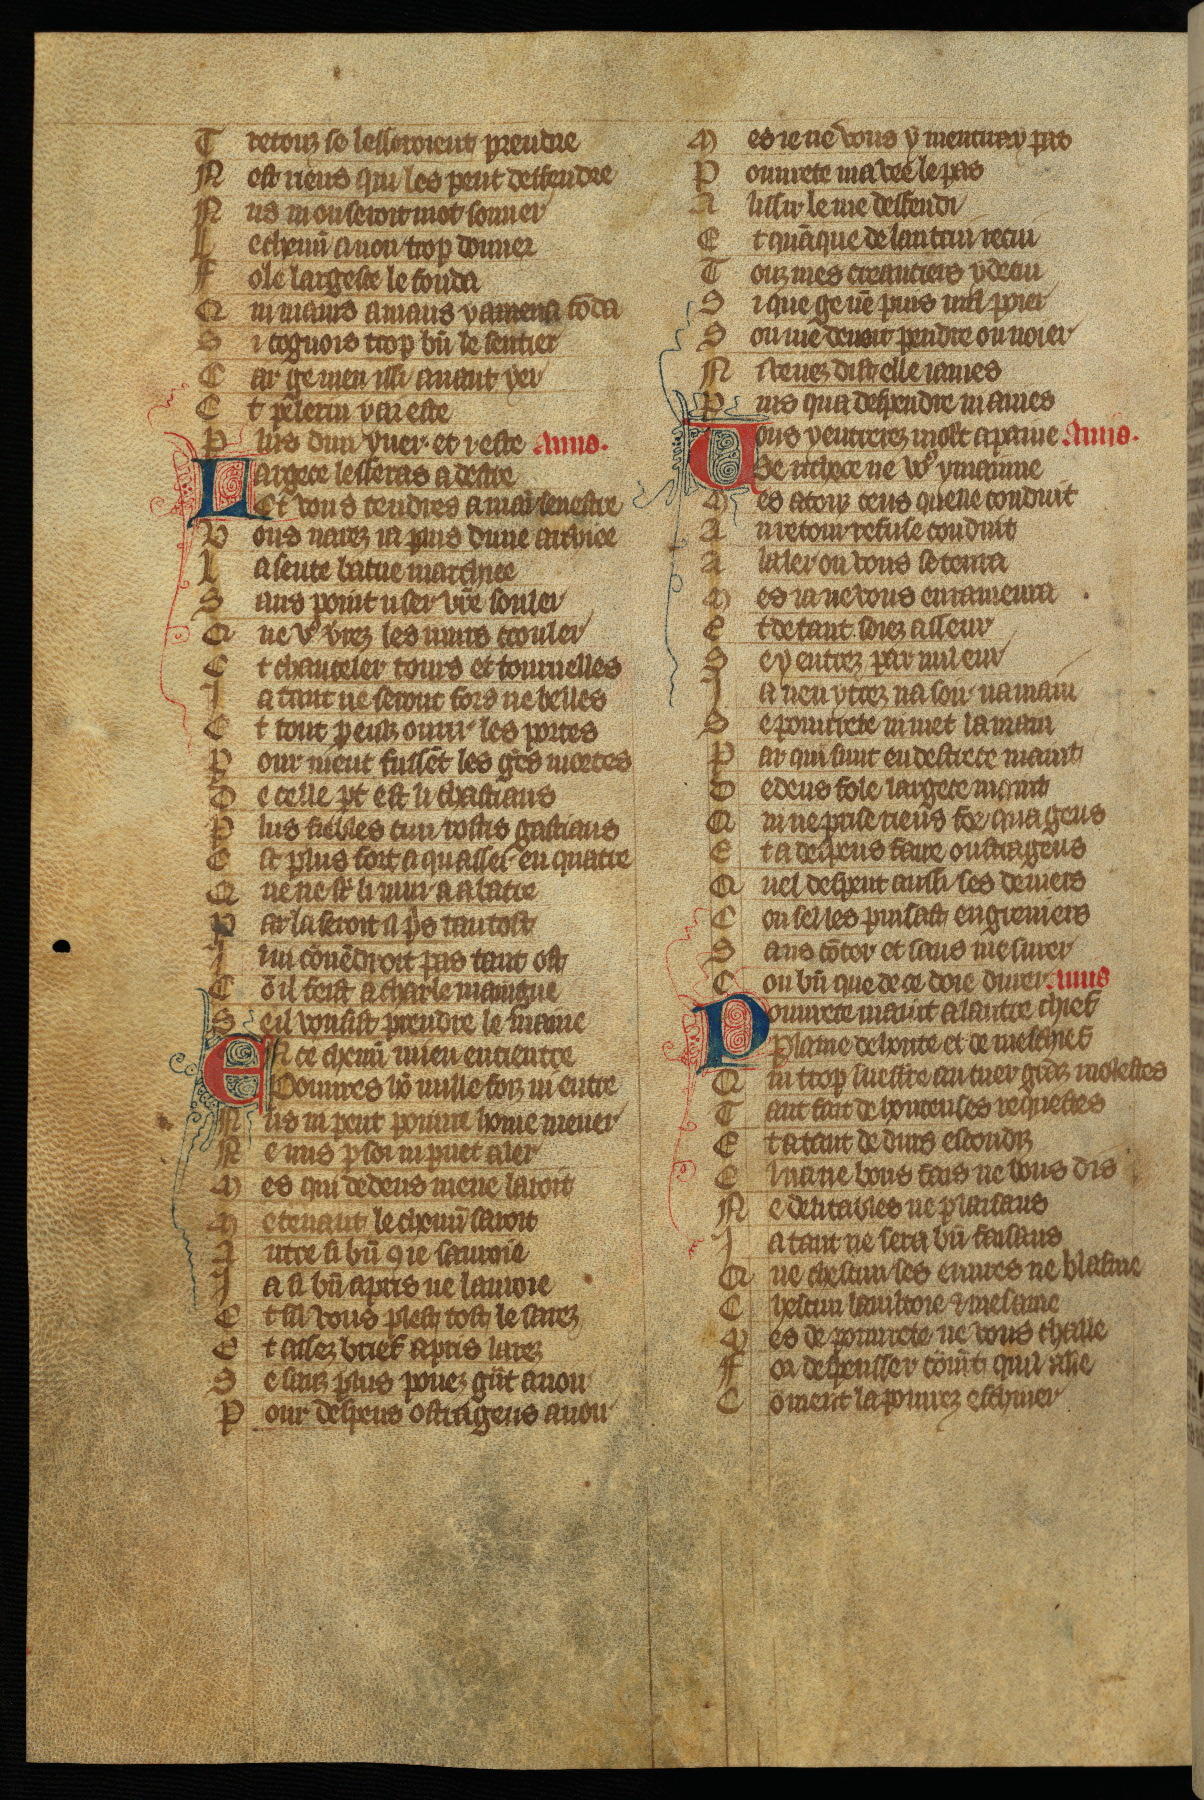 T retouz se lesseroient prendre
N est riens qui les peut deffendre
N us mon seroit mot sonner
L e chemin a non trop donner
F ole largesce le fonda
Q ui mains amans y amena
S i cognois trop bn̄ le sentier
C ar ge men issi avant yer
E t pelerin y ai este
P lus dun yver et i este Amis.
Largece lesseras a destre
Et vous tendres a main senestre
V ous narez ia plus dune archiee
L a sente batue marchiee
S anz point user vr̄e souler
Q ue vo9 vrez les murs crouler
E t chanceler tours et tournelles
J a tant ne seront fors ne belles
E t tout p eulz ouvrir les portes
P our nient fussēt les gēs mortes
D e celle pt est li chastiaus
P lus fiebles cun rostis gastiaus
E st plus fort a quasser en quatre
Q ue ne st̄ li mur a abatre
P ar la seroit il ps̄ tantost
J l ni cōvēdroit pas tant ost
C ō il feist a charlemaingne
S eil vousist prendre le maine
En ce chemī mien entientre
Povres hō nulle foiz ni entre
N us ni peut povre home mener
N e nus p soi ni puet aler
M es qui dedens mene lavoit
M etenant le chemī savoit
A utre si bn̄ 9 ie savroie
J a si bn̄ apris ne lavroie
E t sil vous plest tost le savrez
E t assez brief apris larez
S e sanz plus povez gn̄t avoir
P our despens ostragens avoir
M es ie ne vous y menturay pas
P ouvrete ma vee le pas
A lissir le me deffendi
E t quāque de lautrui recui
T ouz mes creantiers y decui
S i que ge nē puis nul poier
S on mē devoit pendre ou noier
N i venez dist elle iames
P uis qua despendre ni a mes
Vous y entrerez molt a paine Amis.
Se richece ne vo9 y maine
M es a touz ceus quelle conduit
A u retour refuse conduit
A laler ou vous se tenra
M es ia ne vous en ramenra
E t de tant soiez asseur
S e y entrez par nul eur
J a nen ystrez na soir na main
S e pouvrete ni met la main
P ar qui sunt en destrece maint
D edens fole largece maint
Q ui ne prise riens for qua geus
E t a despens faire oustrageus
Q uel despent aussi ses deniers
C on sel les puisast en greniers
S ans cōter et sans mesurer
C on bn̄ que de ce doie durer Amis
Pouvrete maint a lautre chief
Plaine de honte et de meschief
Q ui trop sueffre au cuer gn̄dz molestes
T ant fait de honteuses requestes
E t a tant de durs escondiz
E l na ne bons fais ne bons dis
N e delitables ne plaisans
J a tant ne sera bn̄ faisans
Q ue chescun ses euvres ne blasme
C hescun lauiltoie et mesame
M es de pouvrete ne vous chaille
F or despensser cōmt̄ quil aille
C oment la pourrez eschiver